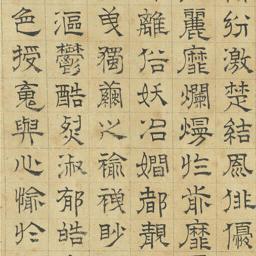 紛激楚結風俳優
麗靡爛熳於前靡
離俗妖冶嫺都靚
曳獨繭之褕眇
漚鬱酷烈淑郁皓
色授魂與心愉於